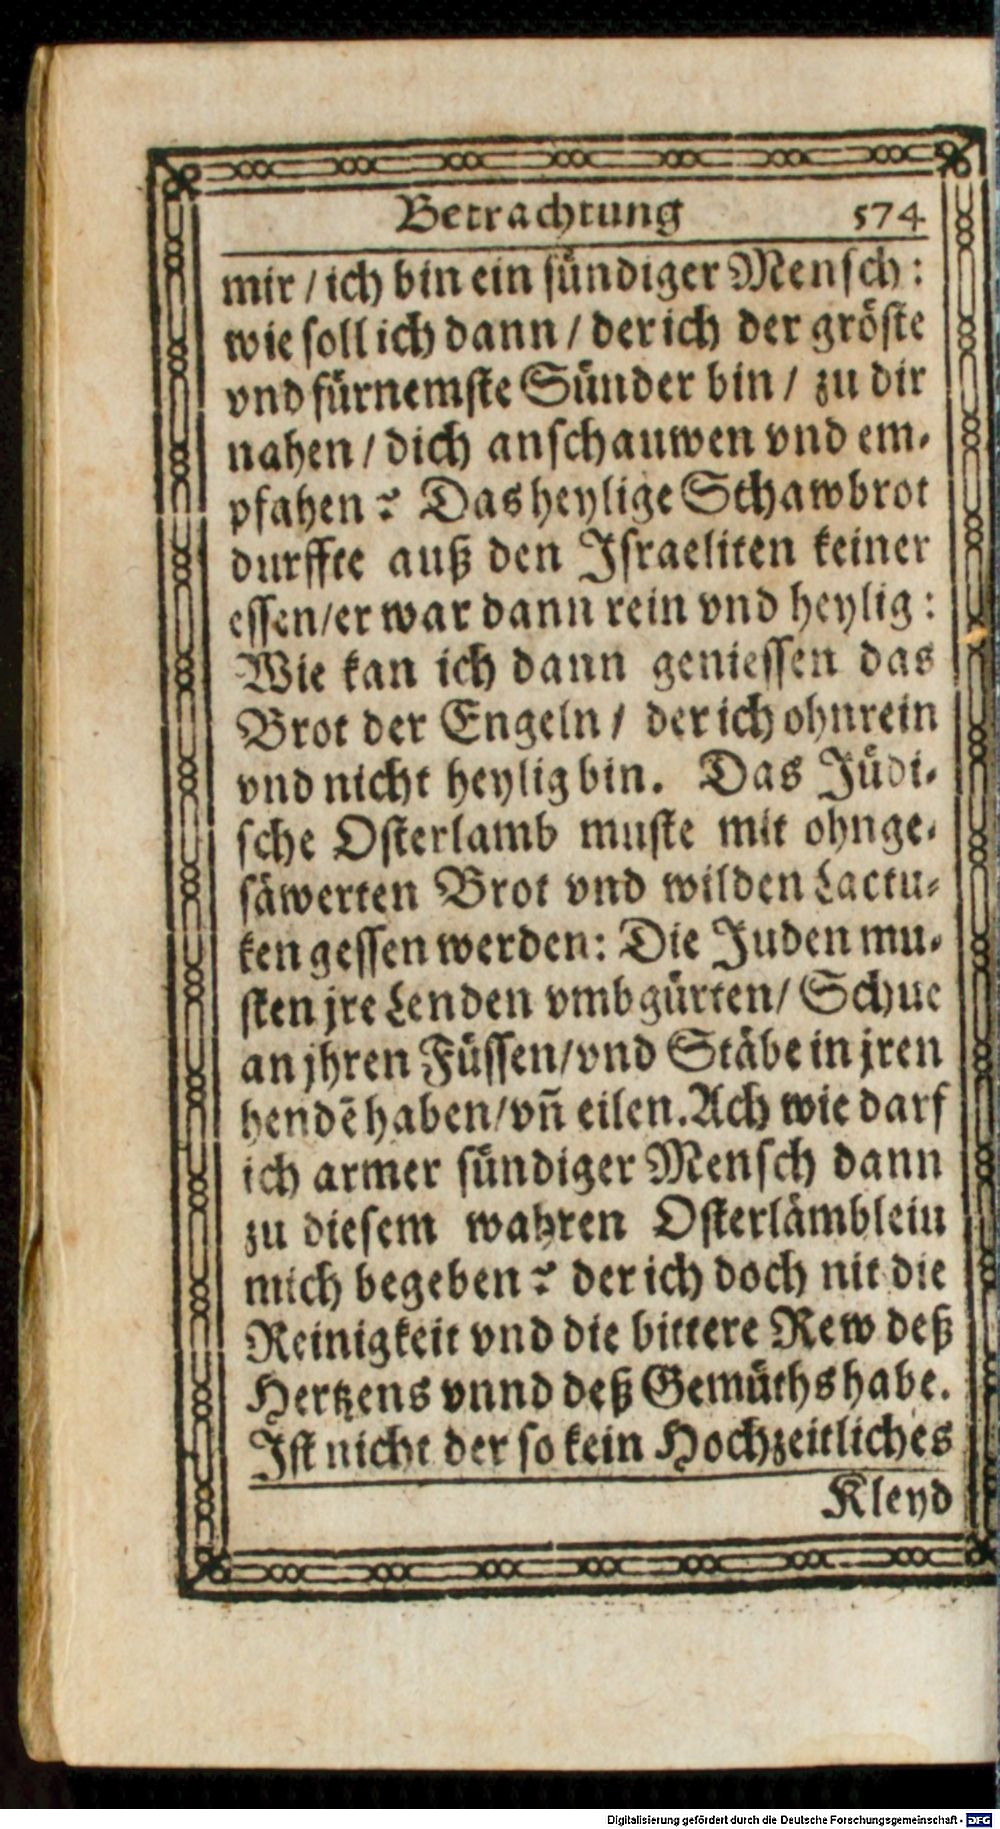 Betrachtung 574
mir / ich bin ein sündiger Mensch :
wie soll ich dann / der ich der gröste
vnd fürnemste Sünder bin / zu dir
nahen / dich anschauwen vnd em-
pfahen? Das heylige Schawbrot
durffte auß den Israeliten keiner
essen/er war dann rein vnd heylig :
Wie kan ich dann geniessen das
Brot der Engeln / der ich ohnrein
vnd nicht heylig bin. Das Jüdi-
sche Osterlamb muste mit ohnge-
säwerten Brot vnd wilden Lactu-
ken gessen werden: Die Juden mu-
sten jre Lenden vmbgürten/ Schue
an jhren Füssen/vnd Stäbe in jren
hendē haben/vñ eilen. Ach wie darf
ich armer sündiger Mensch dann
zu diesem wahren Osterlämblein
mich begeben? der ich doch nit die
Reinigkeit vnd die bittere Rew deß
Hertzens vnnd deß Gemüths habe.
Ist nicht der so kein Hochzeitliches
Kleyd
Digitalisierung gefördert durch die Deutsche Forschungsgemeinschaft - DFG